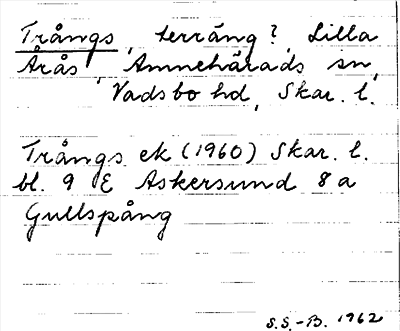 Trångs, terräng?, Lilla
Årås, Amnehärads sn,
Vadsbo hd, Skar. l.
Trångs ek (1960) Skar. l.
bl. 9 E Askersund 8 a
Gullspång
S.S.-B. 1962